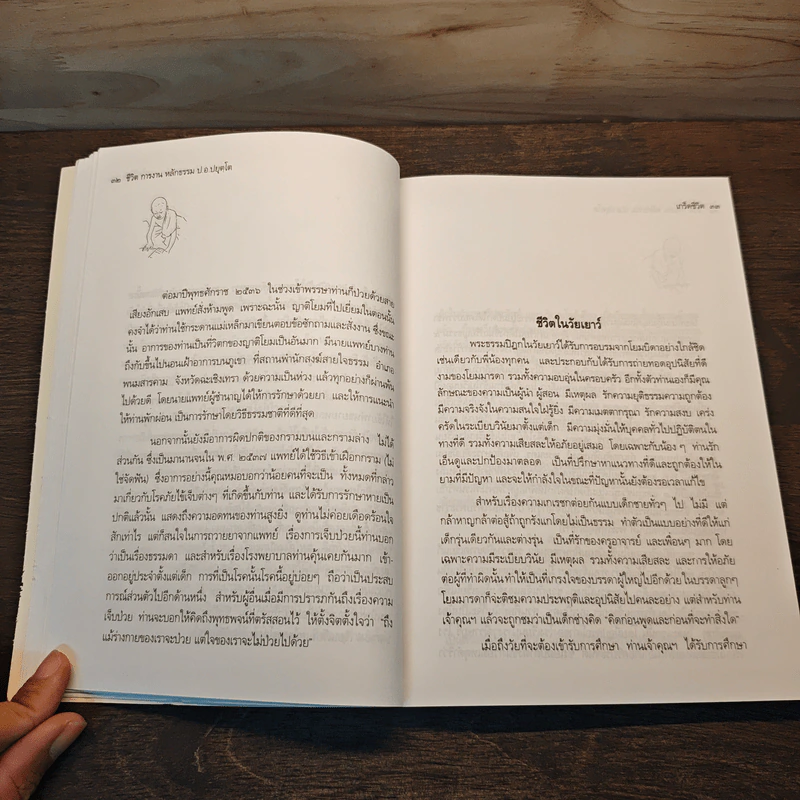 ๓๒ ชีวิต การงาน หลักธรรม ป.อ.ปยุตโต
ต่อมาปีพุทธศักราช ๒๕๓๖ ในช่วงเข้าพรรษาท่านก็ป่วยด้วยสาย
เสียงอักเสบ แพทย์สั่งห้ามพูด เพราะฉะนั้น ญาติโยมที่ไปเยี่ยมในตอนนั้น
คงจำได้ว่าท่านใช้กระดานแม่เหล็กมาเขียนตอบข้อซักถามและสั่งงาน ซึ่งขณะ
นั้น อาการของท่านเป็นที่วิตกของญาติโยมเป็นอันมาก มีนายแพทย์บางท่าน
ถึงกับขึ้นไปนอนเฝ้าอาการบนภูเขา ที่สถานพำนักสงฆ์สายใจธรรม อำเภอ
พนมสารคาม จังหวัดฉะเชิงเทรา ด้วยความเป็นห่วง แล้วทุกอย่างก็ผ่านพ้น
ไปด้วยดี โดยนายแพทย์ผู้ชำนาญได้ให้การรักษาด้วยยา และให้การแนะนำ
ให้ท่านพักผ่อน เป็นการรักษาโดยวิธีธรรมชาติที่ดีที่สุด
นอกจากนั้นยังมีอาการผิดปกติของกรามบนและกรามล่าง ไม่ได้
ส่วนกัน ซึ่งเป็นมานานจนใน พ.ศ. ๒๕๓๗ แพทย์ได้ใช้วิธีเข้าเฝือกกราม (ไม่
ใช่จัดฟัน) ซึ่งอาการอย่างนี้คุณหมอบอกว่าน้อยคนที่จะเป็น ทั้งหมดที่กล่าว
มาเกี่ยวกับโรคภัยไข้เจ็บต่างๆ ที่เกิดขึ้นกับท่าน และได้รับการรักษาหายเป็น
ปกติแล้วนั้น แสดงถึงความอดทนของท่านสูงยิ่ง ดูท่านไม่ค่อยเดือดร้อนใจ
สักเท่าไร แต่ก็สนใจในการถวายยาจากแพทย์ เรื่องการเจ็บป่วยนี้ท่านบอก
ว่าเป็นเรื่องธรรมดา และสำหรับเรื่องโรงพยาบาลท่านคุ้นเคยกันมาก เข้า-
ออกอยู่ประจำตั้งแต่เด็ก การที่เป็นโรคนั้นโรคนี้อยู่บ่อยๆ ถือว่าเป็นประสบ
การณ์ส่วนตัวไปอีกด้านหนึ่ง สำหรับผู้อื่นเมื่อมีการปรารภกันถึงเรื่องความ
เจ็บป่วย ท่านจะบอกให้คิดถึงพุทธพจน์ที่ตรัสสอนไว้ ให้ตั้งจิตตั้งใจว่า "ถึง
แม้ร่างกายของเราจะป่วย แต่ใจของเราจะไม่ป่วยไปด้วย"
ชีวิตในวัยเยาว์
พระธรรมปิฎกในวัยเยาว์ได้รับการอบรมจากโยมบิดาอย่างใกล้ชิด
เช่นเดียวกับพี่น้องทุกคน และประกอบกับได้รับการถ่ายทอดอุปนิสัยที่ดี
งามของโยมมารดา รวมทั้งความอบอุ่นในครอบครัว อีกทั้งตัวท่านเองก็มีคุณ
ลักษณะของความเป็นผู้นำ ผู้สอน มีเหตุผล รักความยุติธรรมความถูกต้อง
มีความจริงจังในความสนใจใฝ่รู้ยิ่ง มีความเมตตากรุณา รักความสงบ เคร่ง
ครัดในระเบียบวินัยมาตั้งแต่เด็ก มีความมุ่งมั่นให้บุคคลทั่วไปปฏิบัติตนใน
ทางที่ดี รวมทั้งความเสียสละให้อภัยอยู่เสมอ โดยเฉพาะกับน้อง ๆ ท่านรัก
เอ็นดูและปกป้องมาตลอด เป็นที่ปรึกษาหาแนวทางที่ดีและถูกต้องให้ใน
ยามที่มีปัญหา และจะให้กำลังใจในขณะที่ปัญหานั้นยังต้องรอเวลาแก้ไข
สำหรับเรื่องความเกเรชกต่อยกันแบบเด็กชายทั่วๆ ไป ไม่มี แต่
กล้าหาญกล้าต่อสู้ถ้าถูกรังแกโดยไม่เป็นธรรม ทำตัวเป็นแบบอย่างที่ดีให้แก่
เด็กรุ่นเดียวกันและต่างรุ่น เป็นที่รักของครูอาจารย์ และเพื่อนๆ มาก โดย
เฉพาะความมีระเบียบวินัย มีเหตุผล รวมทั้งความเสียสละ และการให้อภัย
ต่อผู้ที่ทำผิดนั้นทำให้เป็นที่เกรงใจของบรรดาผู้ใหญ่ไปอีกด้วย ในบรรดาลูกๆ
โยมมารดาก็จะติชมความประพฤติและอุปนิสัยไปคนละอย่าง แต่สำหรับท่าน
เจ้าคุณฯ แล้วจะถูกชมว่าเป็นเด็กช่างคิด "คิดก่อนพูดและก่อนที่จะทำสิ่งใด"
เมื่อถึงวัยที่จะต้องเข้ารับการศึกษา ท่านเจ้าคุณฯ ได้รับการศึกษา